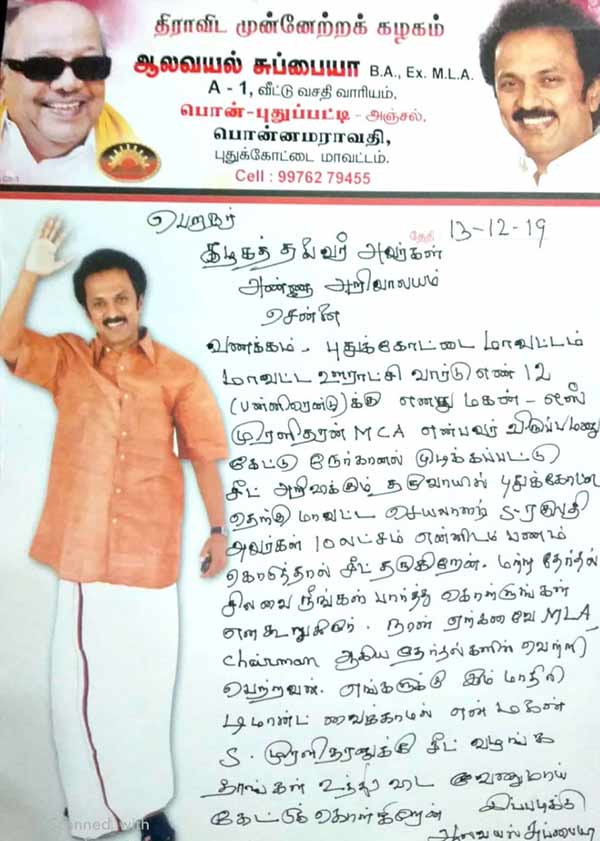 திராவிட முன்னேற்றக் கழகம்
ஆலவயல் சுப்பையா B.A., Ex. M.L.A.
A - 1, வீட்டு வசதி வாரியம்,
பொன்-புதுப்பட்டி - அஞ்சல்,
பொன்னமராவதி,
புதுக்கோட்டை மாவட்டம்.
Cell : 99762 79455
பெறுநர்
தேதி 13-12-19
கழகத் தலைவர் அவர்கள்
அண்ணா அறிவாலயம்
சென்னை
வணக்கம். புதுக்கோட்டை மாவட்டம்
மாவட்ட ஊராட்சி வார்டு எண் 12
(பன்னிரெண்டு)க்கு எனது மகன் - எஸ்
முரளிதரன் MCA என்பவர் விருப்பமனு
கேட்டு நேர்காணல் முடிக்கப்பட்டு
சீட் அறிவிக்கும் தருவாயில் புதுக்கோட்டை
தெற்கு மாவட்ட செயலாளர் S-ரகுபதி
அவர்கள் 10 லட்சம் என்னிடம் பணம்
கொடுத்தால் சீட் தருகிறேன். மற்ற தேர்தல்
செலவை நீங்கள் பார்த்து கொள்ளுங்கள்
என கூறுகிறார். நான் ஏற்கனவே MLA,
Chairman ஆகிய தேர்தல்களில் வெற்றி
பெற்றவன். எங்களுக்கு இம்மாதிரி
டிமாண்ட் வைக்காமல் என் மகன்
S. முரளிதரனுக்கு சீட் வழங்க
தாங்கள் உத்தரவிட வேணுமாய்
கேட்டுக்கொள்கிறேன் இப்படிக்கு
ஆலவயல் சுப்பையா
Scanned with